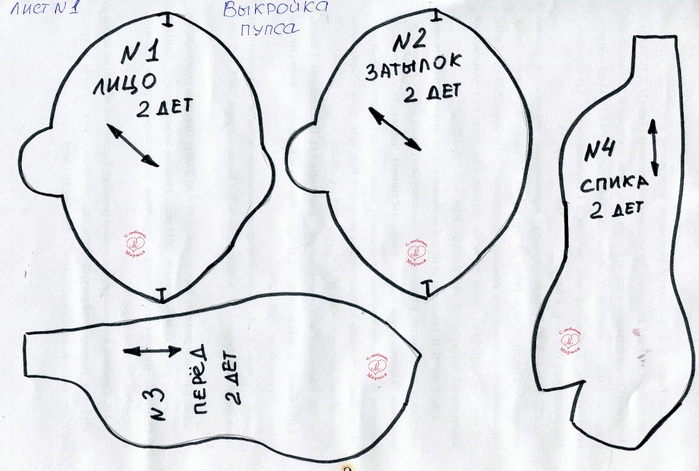 ЛИСТ N1
ВЫКРОЙКА
ПУПСА
N1
ЛИЦО
2 ДЕТ
N2
ЗАТЫЛОК
2 ДЕТ
N4
СПИКА
2 ДЕТ
N3
ПЕРЁД
2 ДЕТ